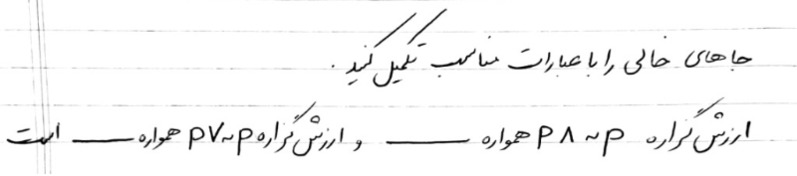 جاهای خالی را با عبارات مناسب تکمیل کنید.
ارزش گزاره p ∧ ~p همواره ــــــــ و ارزش گزاره p ∨ ~p همواره ــــــــ است